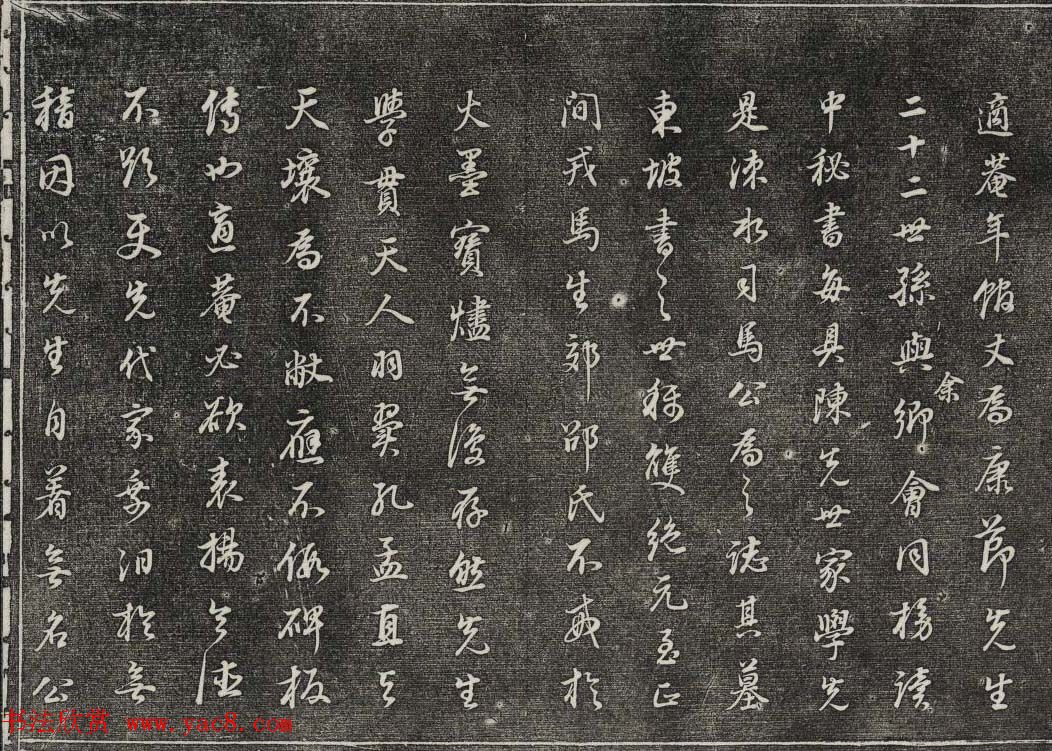 適菴年館丈為康節先生
二十二世孫與余卿會同榜讀
中秘書每具陳先世家學先
是涑水司馬公為之誌其墓
東坡書之世稱雙絕元至正
間戎馬生郊邵氏不戒於
火墨寶燼無復存然先生
學貫天人羽翼孔孟直與
天壤為不敝應不假碑板
傳也適菴必欲表揚令德
不吝先代家乘汨於無
稽因以先生自著無名公
书法欣赏 www.yac8.com